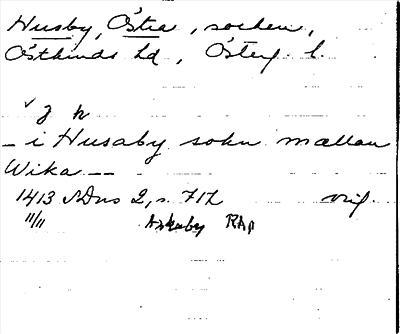 Husby, Östra, socken,
Östkinds hd, Österg. l.
i Husaby sokn mællan
Wika
1413 SDns 2, s. 717 orig.
11/11 Askaby RAp